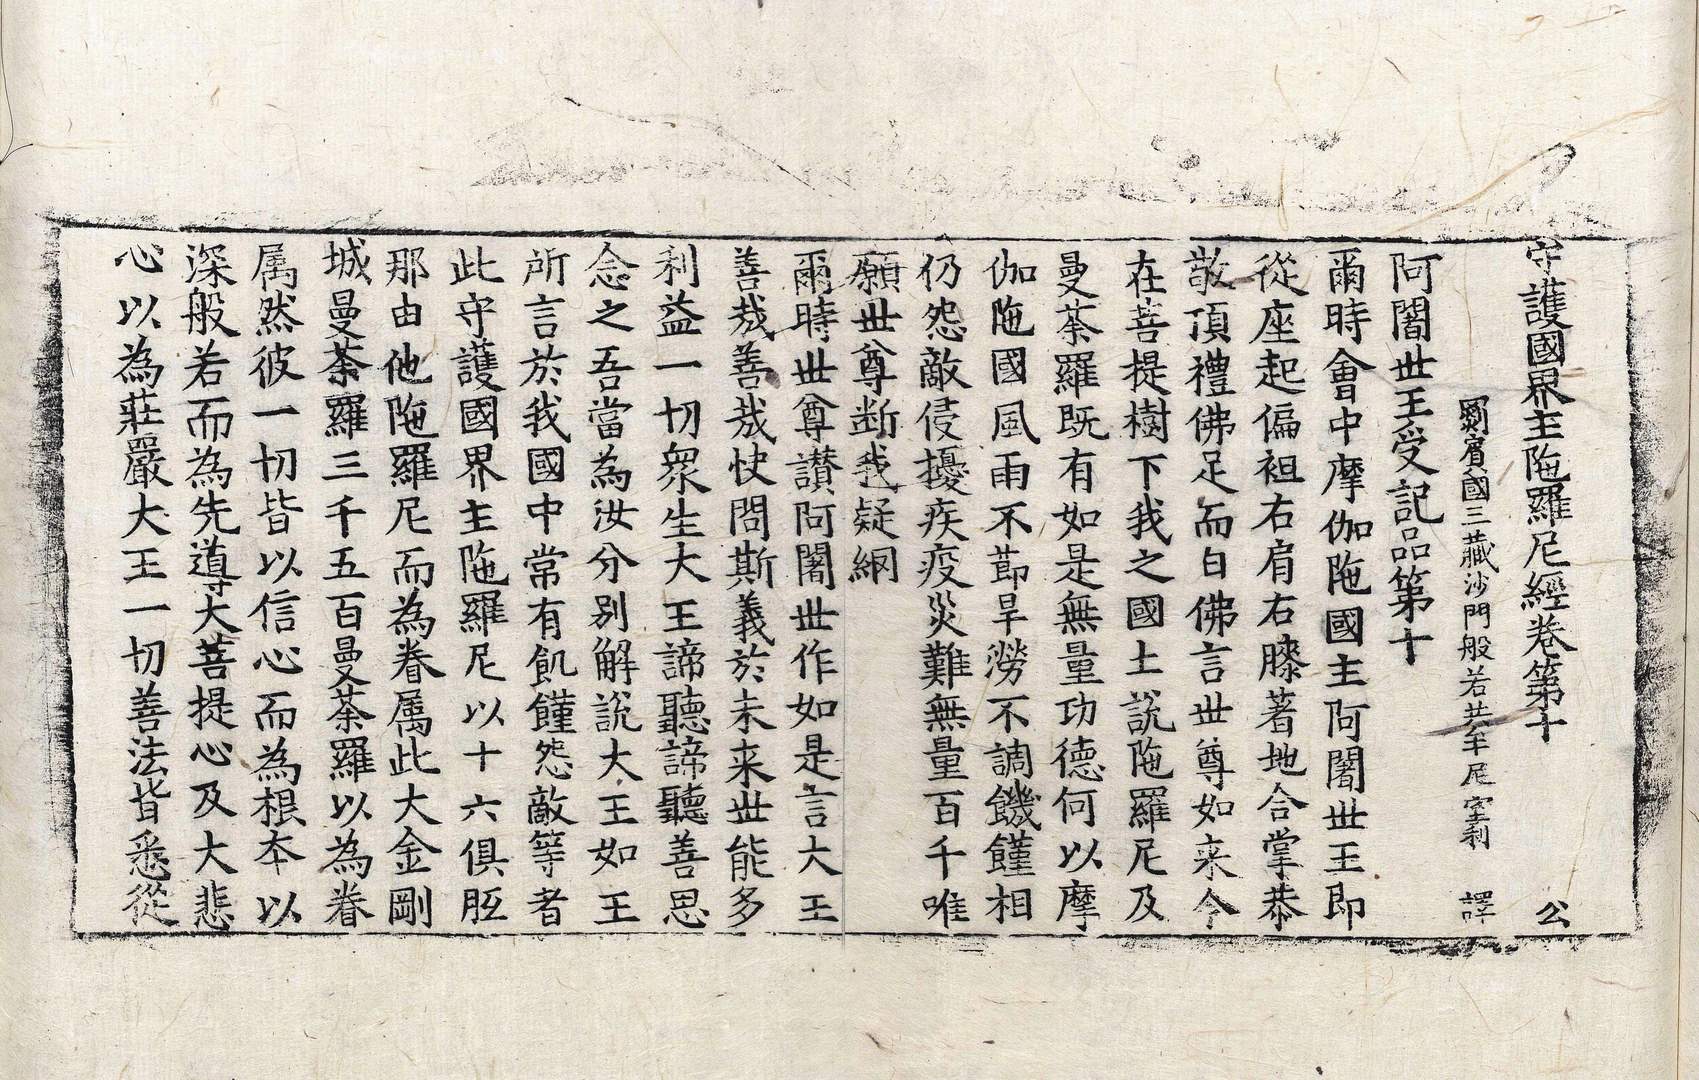 守護國界主陁羅尼經卷第十 公
罽賔國三藏沙門般若共牟尼室利 譯
阿闍世王受記品第十
爾時會中摩伽陁國主阿闍世王即
從座起偏袒右肩右膝著地合掌恭
敬頂禮佛足而白佛言世尊如来今
在菩提樹下我之國土說陁羅尼及
曼荼羅既有如是無量功德何以摩
伽陁國風雨不莭旱澇不調饑饉相
仍怨敵侵擾疾疫災難無量百千唯
願世尊断我疑網
爾時世尊讃阿闍世作如是言大王
善㦲善㦲快問斯義於未来世能多
利益一切衆生大王諦聽諦聽善思
念之吾當為汝分別解說大王如王
所言於我國中常有飢饉怨敵等者
此守護國界主陁羅尼以十六俱胝
那由他陁羅尼而為眷属此大金剛
城曼荼羅三千五百曼荼羅以為眷
属然彼一切皆以信心而為根夲以
深般若而為先導大菩提心及大悲
心以為莊嚴大王一切善法皆悉從